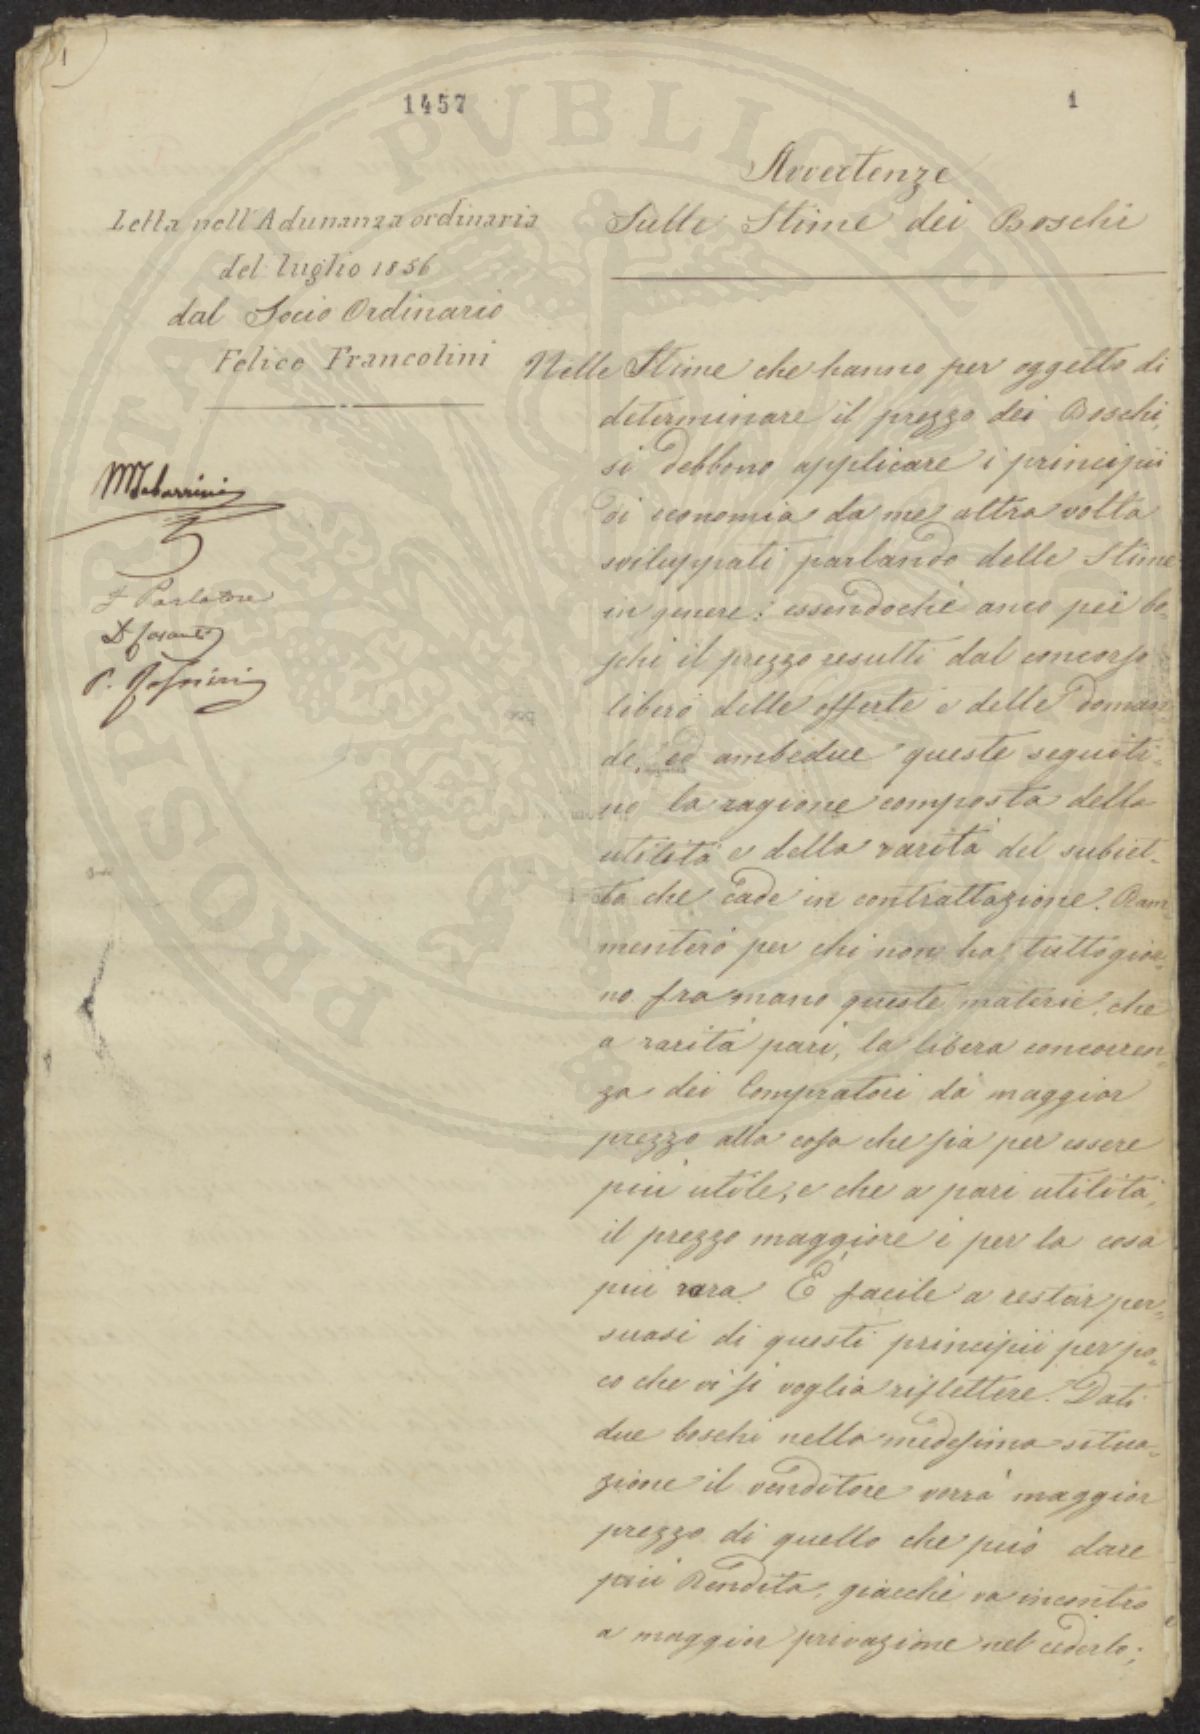 1
1457
1
Letta nell'Adunanza ordinaria
del luglio 1856
dal Socio Ordinario
Felice Francolini
MTabarrini
F Parlatore
P.
Avvertenze
Sulle Stime dei Boschi
Nelle Stime che hanno per oggetto di
determinare il prezzo dei Boschi,
si debbono applicare i principii
di economia da me altra volta
sviluppati parlando delle Stime
in genere: essendochè anco pei bo-
schi il prezzo resulti dal concorso
libero delle offerte e delle doman-
de, ed ambedue queste seguiti-
no la ragione composta della
utilità e della rarità del subiet-
to che cade in contrattazione. Ram-
menterò per chi non ha tuttogior-
no fra mano queste materie, che
a rarità pari, la libera concorren-
za dei Compratori dà maggior
prezzo alla cosa che sia per essere
più utile, e che a pari utilità,
il prezzo maggiore è per la cosa
più rara. È facile a restar per-
suasi di questi principii per po-
co che vi si voglia riflettere. Dati
due boschi nella medesima situa-
zione il venditore vorrà maggior
prezzo di quello che può dare
più Rendita, giacchè va incontro
a maggior privazione nel cederlo;
PROSPERITATI PVBLICAE